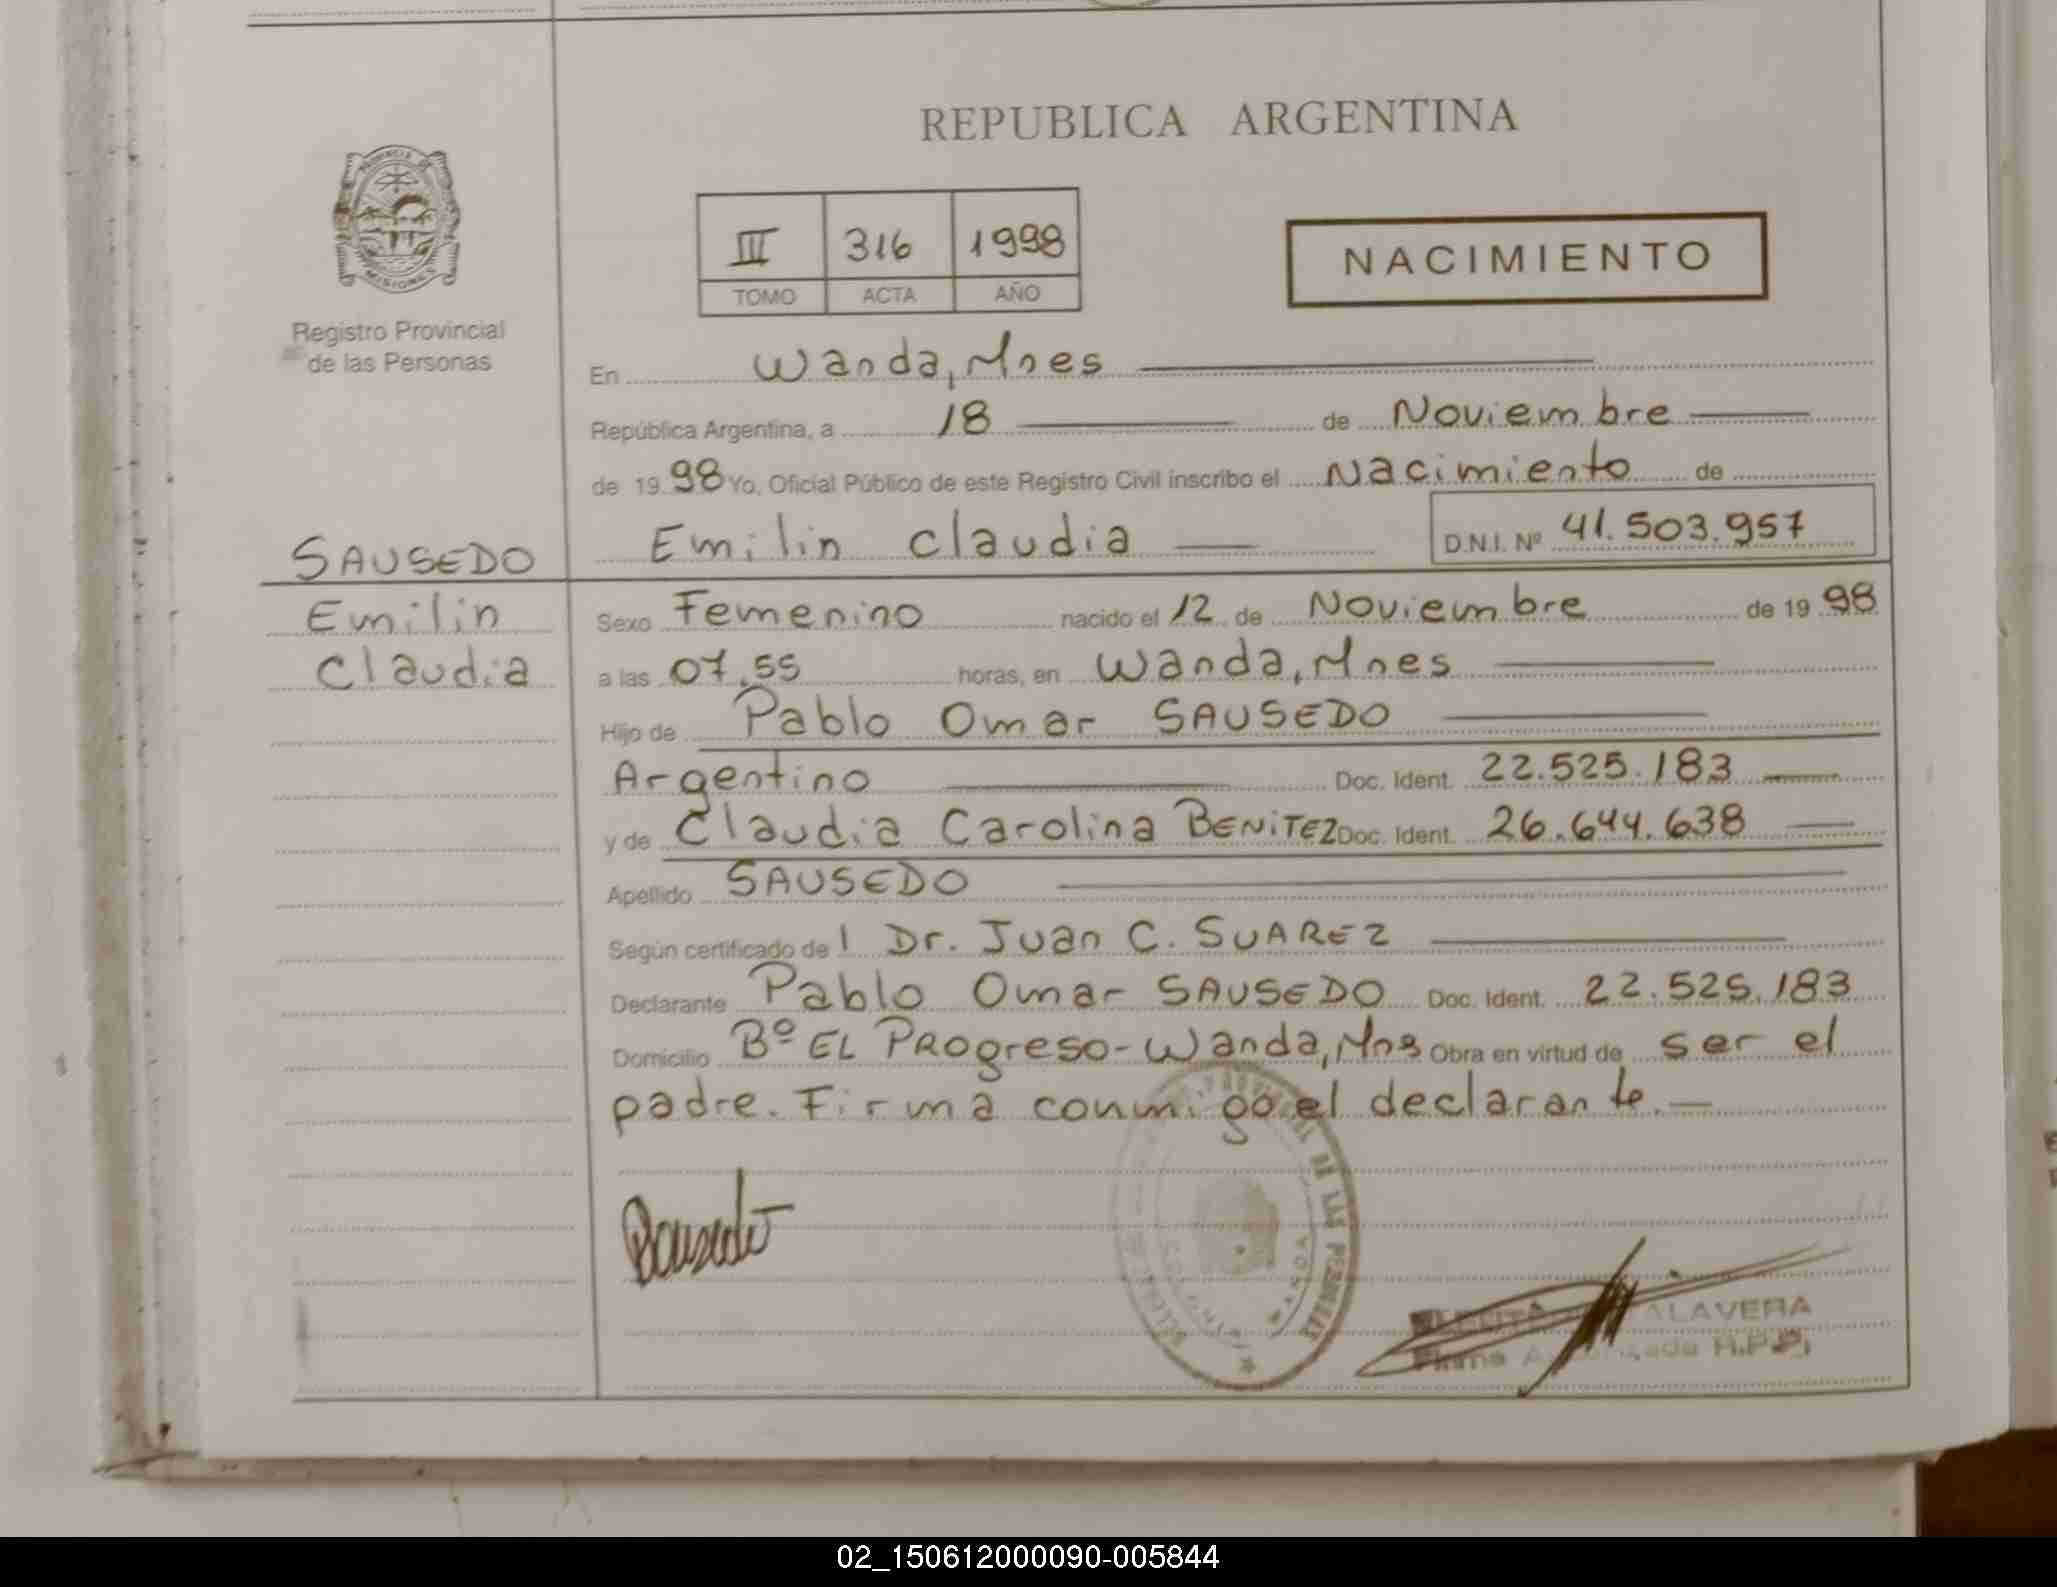 REPUBLICA ARGENTINA
PROVINCIA DE
MISIONES
Registro Provincial
de las Personas
III 316 1998
TOMO ACTA AÑO
NACIMIENTO
En Wanda, Mnes
República Argentina, a 18 de Noviembre
de 1998 Yo, Oficial Público de este Registro Civil inscribo el Nacimiento de
Emilin Claudia D.N.I. Nº 41.503.957
SAUSEDO
Emilin
Claudia
Sexo Femenino nacido el 12 de Noviembre de 1998
a las 07.55 horas, en Wanda, Mnes
Hijo de Pablo Omar SAUSEDO
Argentino Doc. Ident. 22.525.183
y de Claudia Carolina BENITEZ Doc. Ident. 26.644.638
Apellido SAUSEDO
Según certificado de l Dr. Juan C. SUAREZ
Declarante Pablo Omar SAUSEDO Doc. Ident. 22.525.183
Domicilio Bº EL PROgreso - Wanda, Mns Obra en virtud de ser el
padre. Firma conmigo el declarante.
DE LAS PERSONAS
ALAVERA
Firma R.P.P.
02_150612000090-005844